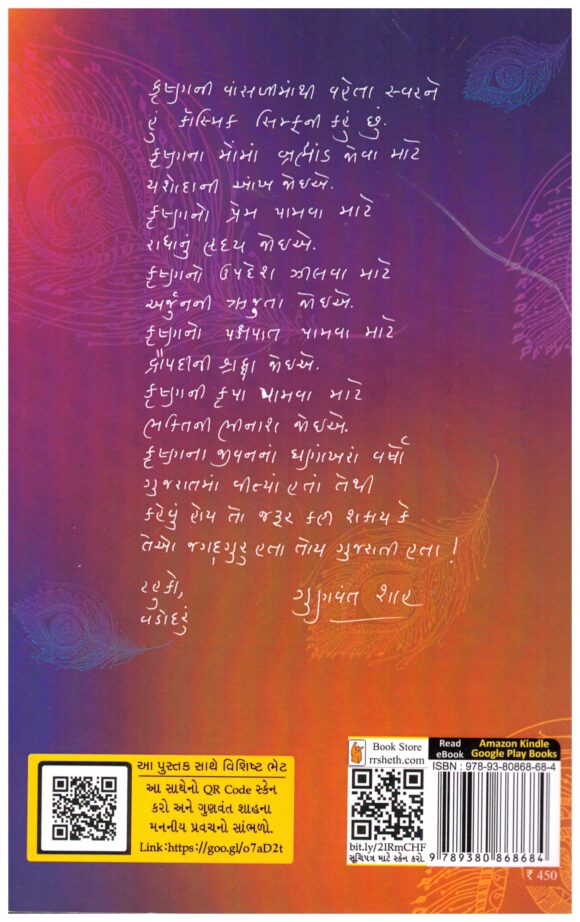 કૃષ્ણની વાંસળીમાંથી વહેતા સ્વરને
હું કૉસ્મિક સિમ્ફની કહું છું.
કૃષ્ણના મોંમાં બ્રહ્માંડ જોવા માટે
યશોદાની આંખ જોઇએ.
કૃષ્ણનો પ્રેમ પામવા માટે
રાધાનું હૃદય જોઇએ.
કૃષ્ણનો ઉપદેશ ઝીલવા માટે
અર્જુનની ઋજુતા જોઇએ.
કૃષ્ણનો પક્ષપાત પામવા માટે
દ્રૌપદીની શ્રદ્ધા જોઇએ.
કૃષ્ણની કૃપા પામવા માટે
ભક્તિની ભીનાશ જોઇએ.
કૃષ્ણના જીવનનાં ઘણાંખરાં વર્ષો
ગુજરાતમાં વીત્યાં હતાં તેથી
કહેવું હોય તો જરૂર કહી શકાય કે
તેઓ જગદ્ગુરુ હતા તોય ગુજરાતી હતા !
ટહુકો,
વડોદરું
ગુણવંત શાહ
આ પુસ્તક સાથે વિશિષ્ટ ભેટ
આ સાથેનો QR Code સ્કેન
કરો અને ગુણવંત શાહના
મનનીય પ્રવચનો સાંભળો.
Link:https://goo.gl/o7aD2t
Book Store
rrsheth.com
bit.ly/2lRmCHF
સૂચિપત્ર માટે સ્કેન કરો.
Read
eBook
Amazon Kindle
Google Play Books
ISBN : 978-93-80868-68-4
9 789380 868684
₹ 450